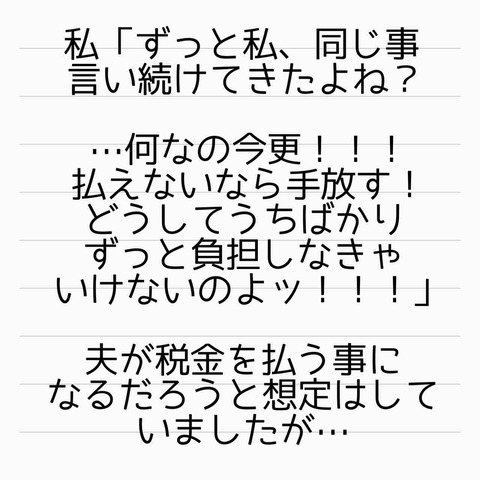 私「ずっと私、同じ事
言い続けてきたよね？
…何なの今更！！！
払えないなら手放す！
どうしてうちばかり
ずっと負担しなきゃ
いけないのよッ！！！」
夫が税金を払う事に
なるだろうと想定はして
いましたが…